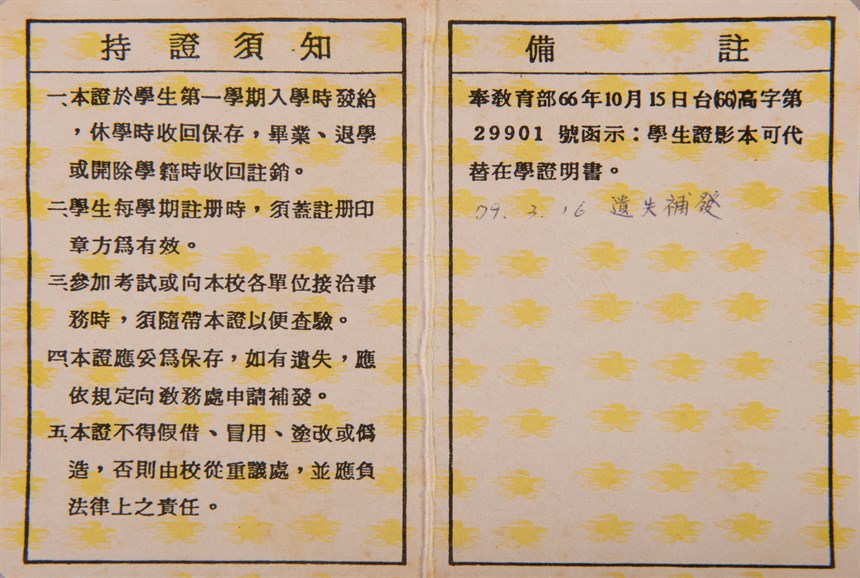 持證須知
一、本證於學生第一學期入學時發給
，休學時收回保存，畢業、退學
或開除學籍時收回註銷。
二、學生每學期註册時，須蓋註册印
章方爲有效。
三、參加考試或向本校各單位接洽事
務時，須隨帶本證以便查驗。
四、本證應妥爲保存，如有遺失，應
依規定向教務處申請補發。
五、本證不得假借、冒用、塗改或僞
造，否則由校從重議處，並應負
法律上之責任。
備註
奉教育部66年10月15日台(66)高字第
29901 號函示：學生證影本可代
替在學證明書。
79. 3. 16 遺失補發